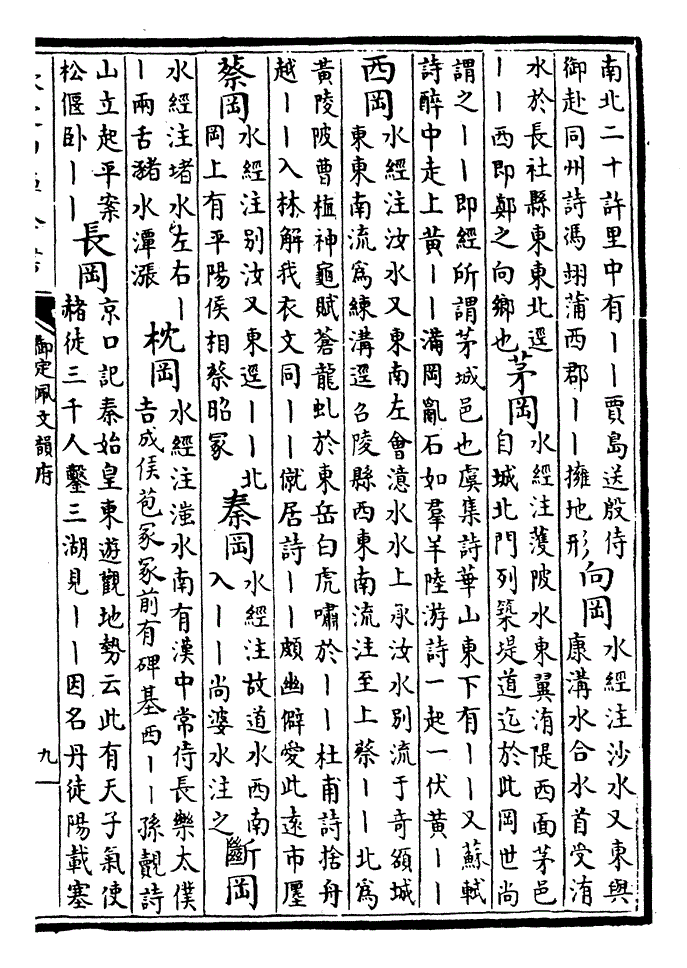 南北二十許里中有丨丨賈島送殷侍
御赴同州詩馮翊蒲西郡丨丨擁地形
向岡
水經注沙水又東與
康溝水合水首受洧
水於長社縣東東北逕
丨丨西即鄭之向鄉也
茅岡
水經注䕶陂水東翼洧隄西面茅邑
自城北門列築堤道迄於此岡世尚
謂之丨丨即經所謂茅城邑也虞集詩華山東下有丨丨又蘇軾
詩醉中走上黄丨丨滿岡亂石如羣羊陸游詩一起一伏黄丨丨
西岡
水經注汝水又東南左會澺水水上承汝水别流于奇頟城
東東南流為練溝逕召陵縣西東南流注至上蔡丨丨北為
黃陵陂曹植神龜賦蒼龍虬於東岳白虎嘯於丨丨杜甫詩捨舟
越丨丨入林解我衣文同丨丨僦居詩丨丨頗幽僻愛此遠市廛
蔡岡
水經注别汝又東逕丨丨北
岡上有平陽侯相蔡昭冢
秦岡
水經注故道水西南
入丨丨尚婆水注之
斷岡
水經注堵水左右丨
丨兩舌豬水潭漲
枕岡
水經注滍水南有漢中常侍長樂太僕
吉成侯苞冢冢前有碑基西丨丨孫覿詩
山立起平案
松偃卧丨丨
長岡
京口記秦始皇東遊觀地勢云此有天子氣使
赭徒三千人鑿三湖見丨丨因名丹徒陽載塞
御定佩文韻府
九